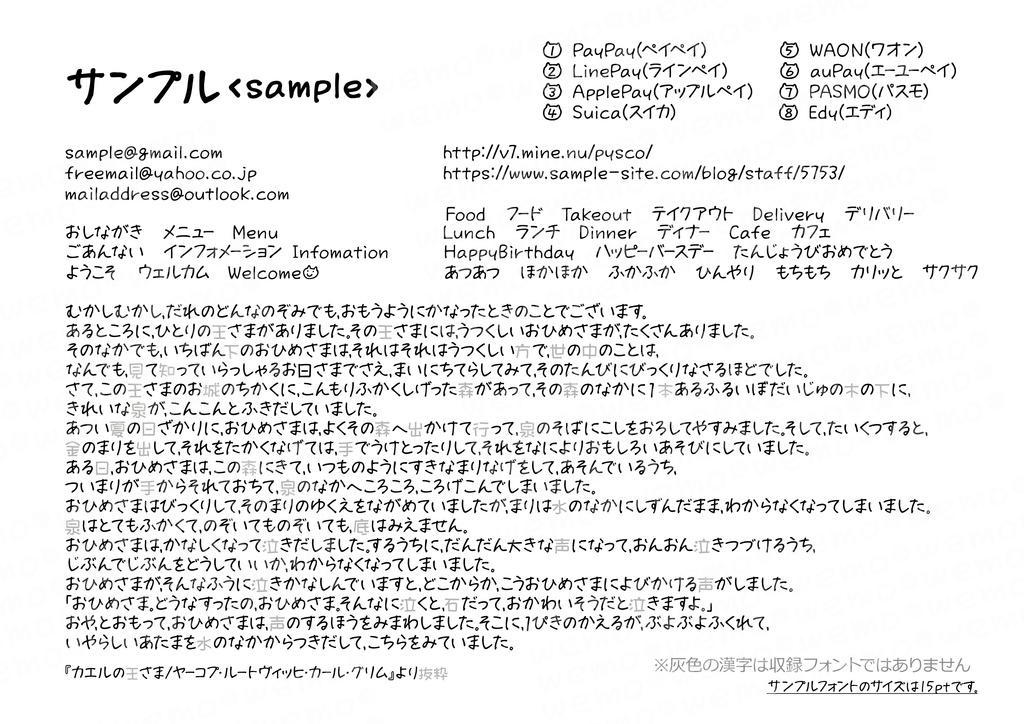 サンプル<sample>
① PayPay(ペイペイ)
② LinePay(ラインペイ)
③ ApplePay(アップルペイ)
④ Suica(スイカ)
⑤ WAON(ワオン)
⑥ auPay(エーユーペイ)
⑦ PASMO(パスモ)
⑧ Edy(エディ)
sample@gmail.com
freemail@yahoo.co.jp
mailaddress@outlook.com
http://v7.mine.nu/pysco/
https://www.sample-site.com/blog/staff/5753/
おしながき メニュー Menu
ごあんない インフォメーション Infomation
ようこそ ウェルカム Welcome
Food フード Takeout テイクアウト Delivery デリバリー
Lunch ランチ Dinner ディナー Cafe カフェ
HappyBirthday ハッピーバースデー たんじょうびおめでとう
あつあつ ほかほか ふかふか ひんやり もちもち カリッと サクサク
むかしむかし,だれのどんなのぞみでも,おもうようにかなったときのことでございます。
あるところに,ひとりの王さまがありました。その王さまには,うつくしいおひめさまが,たくさんありました。
そのなかでも,いちばん下のおひめさまは,それはそれはうつくしい方で,世の中のことは,
なんでも,見て知っていらっしゃるお日さまでさえ,まいにちてらしてみて,そのたんびにびっくりなさるほどでした。
さて,この王さまのお城のちかくに,こんもりふかくしげった森があって,その森のなかに1本あるふるいぼだいじゅの木の下に,
きれいな泉が,こんこんとふきだしていました。
あつい夏の日ざかりに,おひめさまは,よくその森へ出かけて行って,泉のそばにこしをおろしてやすみました。そして,たいくつすると,
金のまりを出して,それをたかくなげては,手でうけとったりして,それをなによりおもしろいあそびにしていました。
ある日,おひめさまは,この森にきて,いつものようにすきなまりなげをして,あそんでいるうち,
ついまりが手からそれておちて,泉のなかへころころ,ころげこんでしまいました。
おひめさまはびっくりして,そのまりのゆくえをながめていましたが,まりは水のなかにしずんだまま,わからなくなってしまいました。
泉はとてもふかくて,のぞいてものぞいても,底はみえません。
おひめさまは,かなしくなって泣きだしました。するうちに,だんだん大きな声になって,おんおん泣きつづけるうち,
じぶんでじぶんをどうしていいか,わからなくなってしまいました。
おひめさまが,そんなふうに泣きかなしんでいますと,どこからか,こうおひめさまによびかける声がしました。
「おひめさま。どうなすったの,おひめさま。そんなに泣くと,石だって,おかわいそうだと泣きますよ。」
おや,とおもって,おひめさまは,声のするほうをみまわしました。そこに,1ぴきのかえるが,ぶよぶよふくれて,
いやらしいあたまを水のなかからつきだして,こちらをみていました。
『カエルの王さま/ヤーコプ・ルートヴィッヒ・カール・グリム』より抜粋
※灰色の漢字は収録フォントではありません
サンプルフォントのサイズは15ptです。